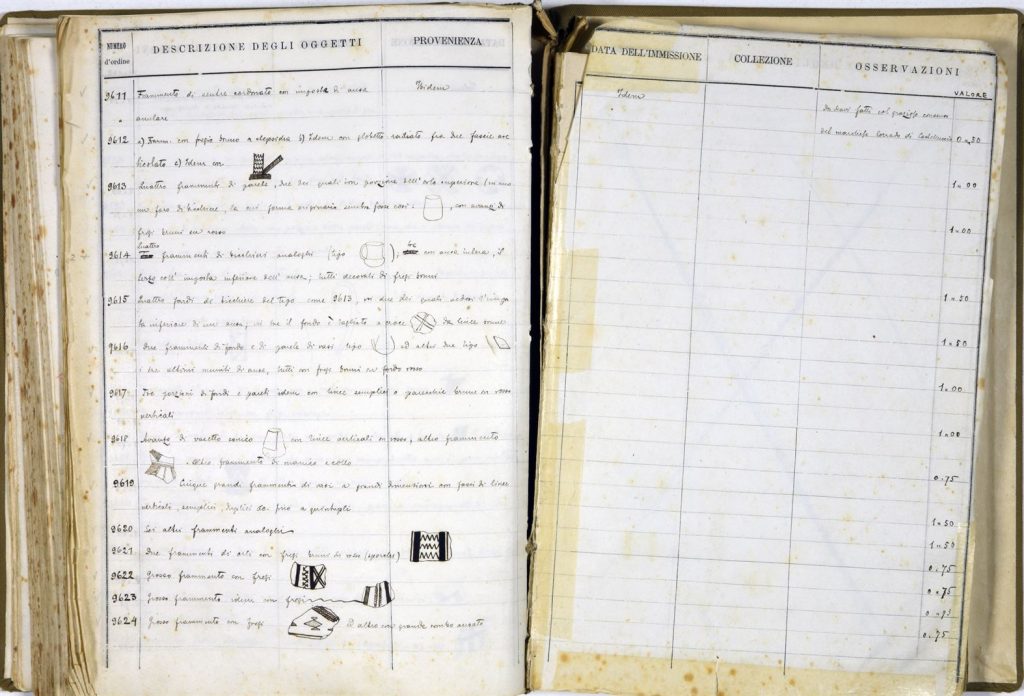 NUMERO d'ordine
DESCRIZIONE DEGLI OGGETTI
PROVENIENZA
9611 Frammento di ventre cordonato con imposta d'ansa Ibidem
anulare
9612 a) Framm. con fregio bruno a clepsidra b) Idem con globetto radiato fra due fascie
c) Idem con
9613 Quattro frammenti di parete, due dei quali con porzione dell'orlo superiore
di bicchiere, la cui forma originaria sembra fosse così: , con avanzi di
fregi bruni su rosso
9614 Quattro frammenti di bicchieri analoghi (tipo ) con ansa intera, il
terzo coll' imposta inferiore dell' ansa; tutti decorati di fregi bruni
9615 Quattro fondi di bicchiere del tipo come 9613, in due dei quali
inferiore di un' ansa, in tre il fondo è tagliato a croce da linee brune
9616 Due frammenti di fondo e di parete di vasi tipo ed altri due tipo
muniti di ansa, tutti con fregi bruni su fondo rosso
9617 Tre porzioni di fondi e pareti idem con linee semplici o parecchie brune su rosso
verticali
9618 Avanzo di vasetto conico con linee verticali su rosso, altro frammento
. Altro frammento di manico e collo
9619 Cinque grandi frammenti di vasi a grandi dimensioni con fasci di linee
verticali, semplici, duplici da fino a quintuple
9620 Sei altri frammenti analoghi
9621 Due frammenti di orli con fregi bruni di vaso
9622 Grosso frammento con fregi
9623 Grosso frammento idem con fregi
9624 Grosso frammento con fregi ed altro con grande ansato
DATA DELL'IMMISSIONE
COLLEZIONE
OSSERVAZIONI
VALORE
Idem
Da scavi fatti col grazioso consenso
del marchese Corrado di Castelluccio 0=50
1=00
1=00
1=50
1=50
1=00
1=00
0.75
1=50
1=50
0.75
0.75
0.75
0.75